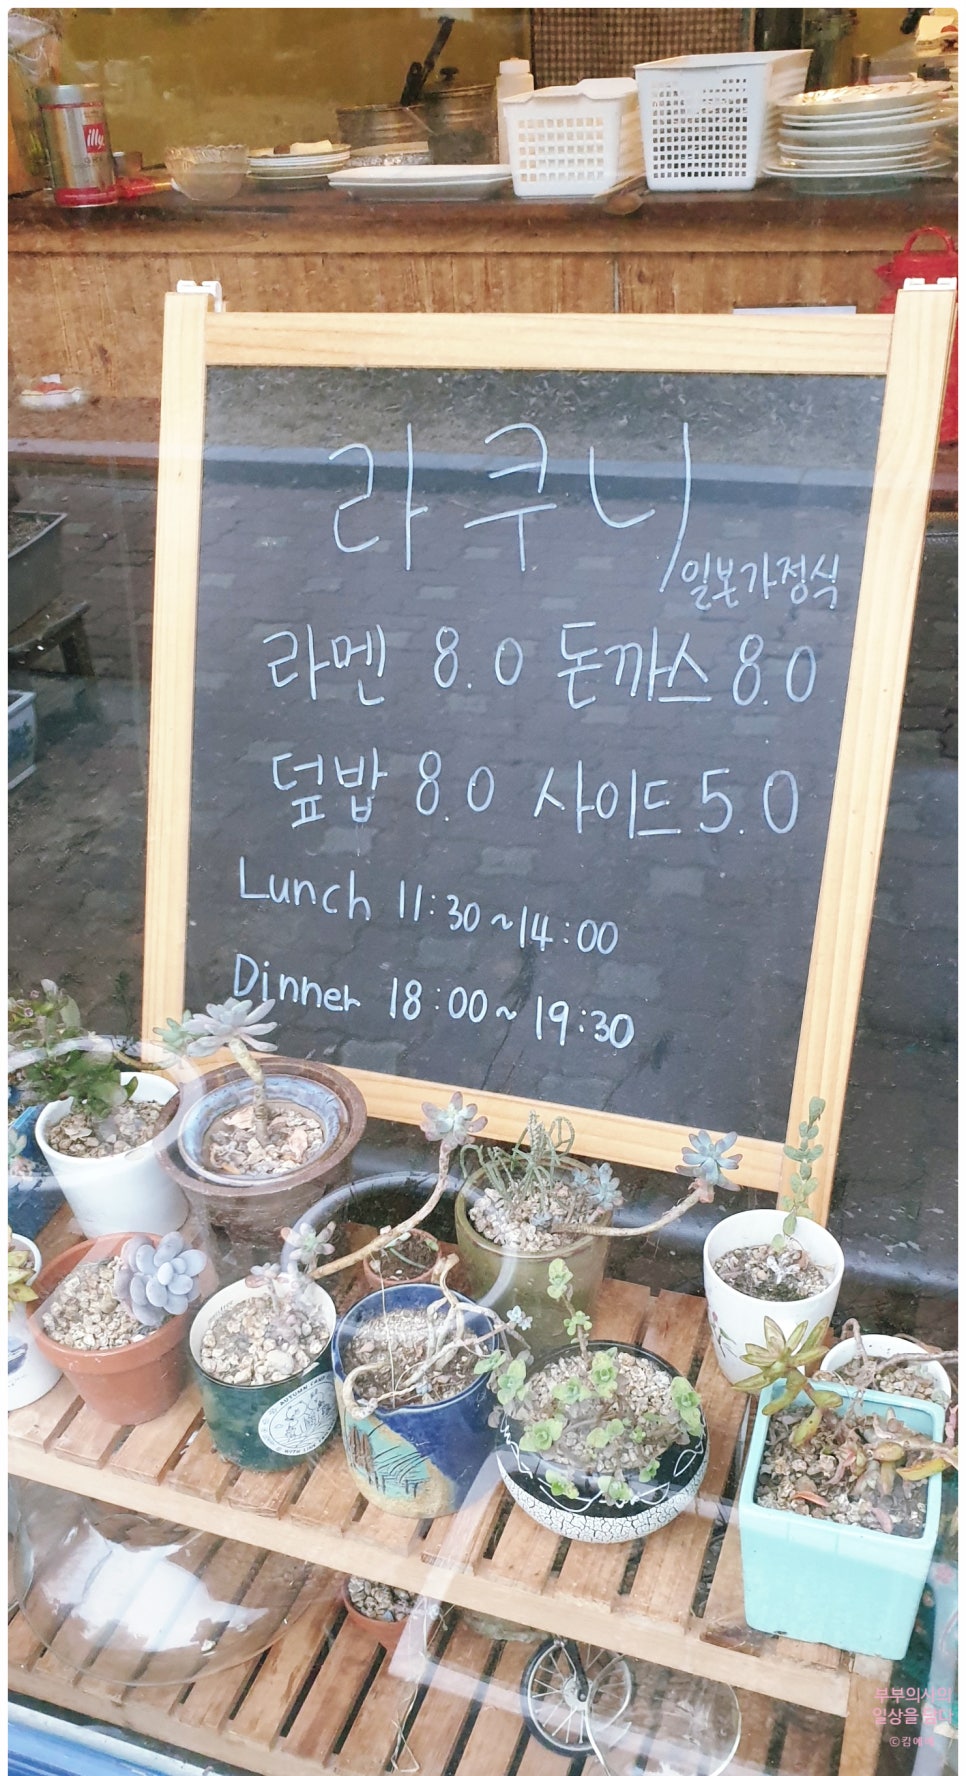 illy
라쿠니
일본가정식
라멘 8.0 돈까스 8.0
덮밥 8.0 사이드 5.0
Lunch 11:30~14:00
Dinner 18:00~19:30
부부의사의
일상을